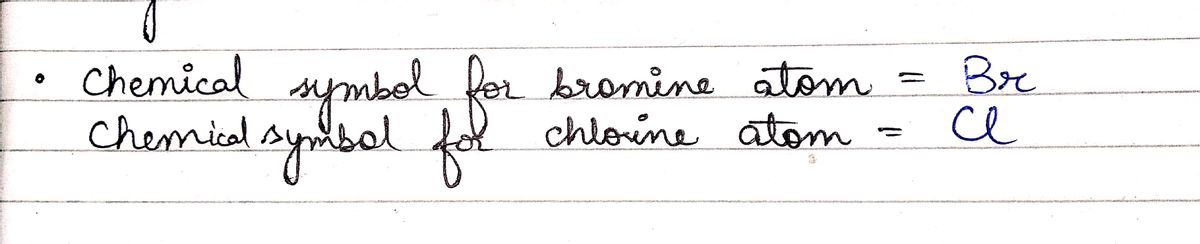 • Chemical symbol for bromine atom = Br
Chemical symbol for chlorine atom = Cl